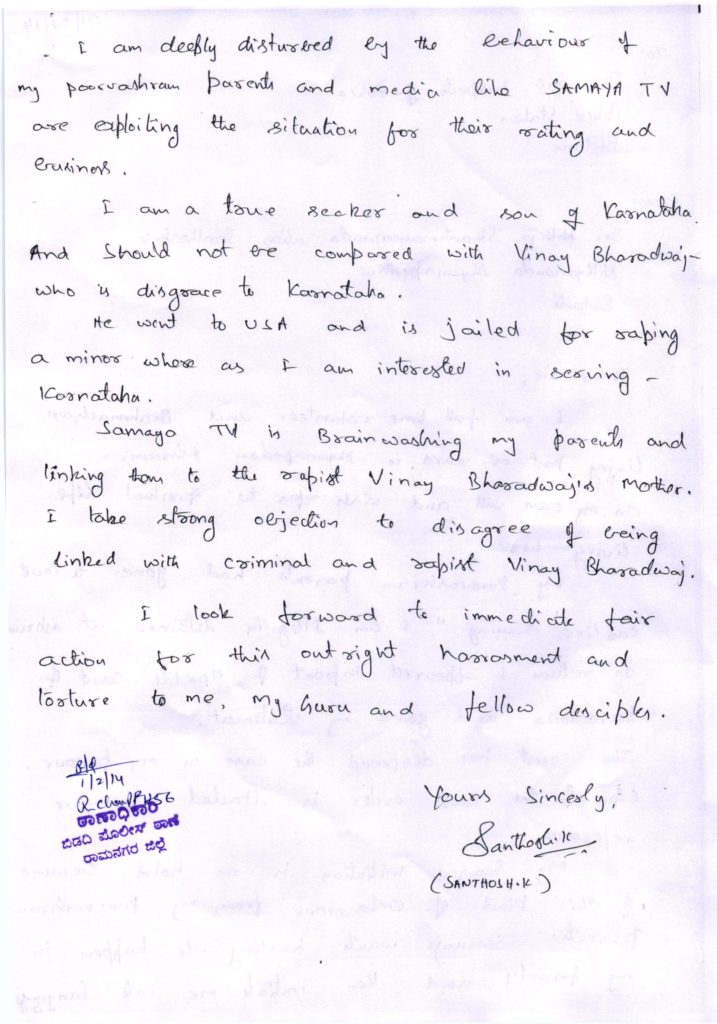 I am deeply disturbed by the behaviour of
my poorvashram parents and media like SAMAYA TV
are exploiting the situation for their rating and
business.
I am a true seeker and son of Karnataka.
And should not be compared with Vinay Bharadwaj-
who is disgrace to Karnataka.
He went to USA and is jailed for raping
a minor where as I am interested in serving -
Karnataka.
Samaya TV is Brainwashing my parents and
linking them to the rapist Vinay Bharadwaj's Mother.
I take strong objection to disagree of being
linked with criminal and rapist Vinay Bharadwaj.
I look forward to immediate fair
action for this outright harrasment and
torture to me, my Guru and fellow desciples.
1/2/14
ಠಾಣಾಧಿಕಾರಿ
ಬಿಡದಿ ಪೊಲೀಸ್ ಠಾಣೆ
ರಾಮನಗರ ಜಿಲ್ಲೆ
Yours Sincesly,
Santhosh.K
(SANTHOSH.K)